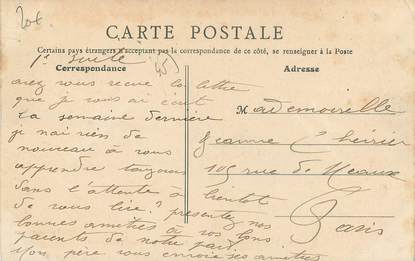 20€
CARTE POSTALE
Certains pays étrangers n'acceptant pas la correspondance de ce côté, se renseigner à la Poste
Correspondance
Adresse
1e suite
45
avez vous recue la lettre
que je vous ai écrit
la semaine dernière
je n'ai rien de
nouveau à vous
apprendre toujours
dans l'attente à bientot
de vous lire. presentez nos
bonnes amitiés à vos bons
parents de notre part
Mon père vous envoie ses amitiés
Mademoiselle
Jeanne
105 rue de Meaux
Paris